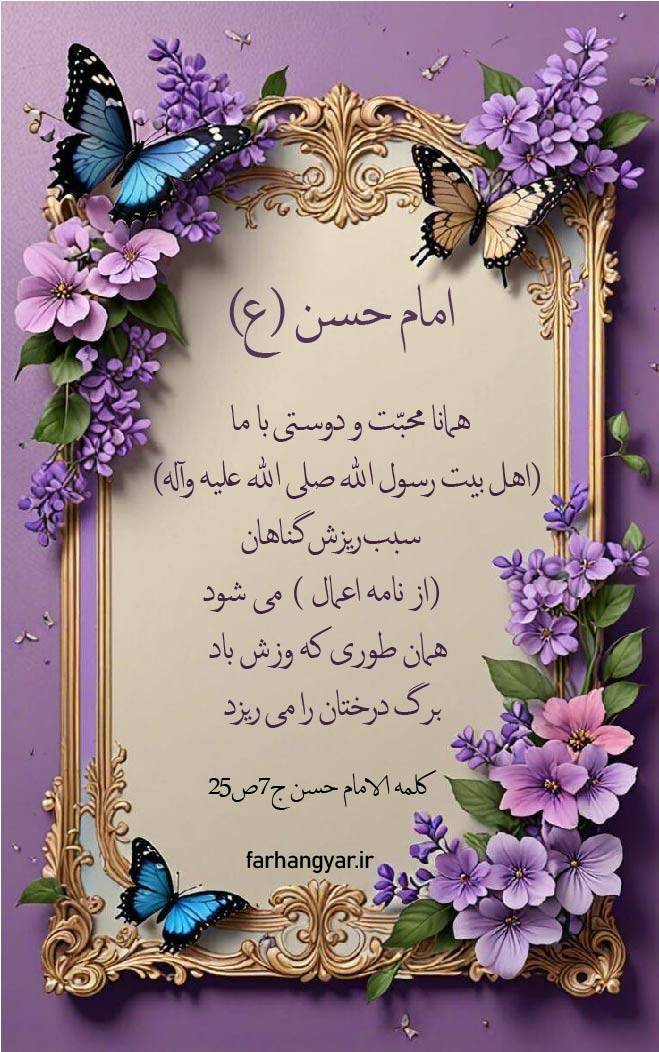 امام حسن (ع)
همانا محبّت و دوستی با ما
(اهل بیت رسول الله صلی الله علیه وآله)
سبب ریزش گناهان
(از نامه اعمال ) می شود
همان طوری که وزش باد
برگ درختان را می ریزد
کلمه الامام حسن ج7ص25
farhangyar.ir